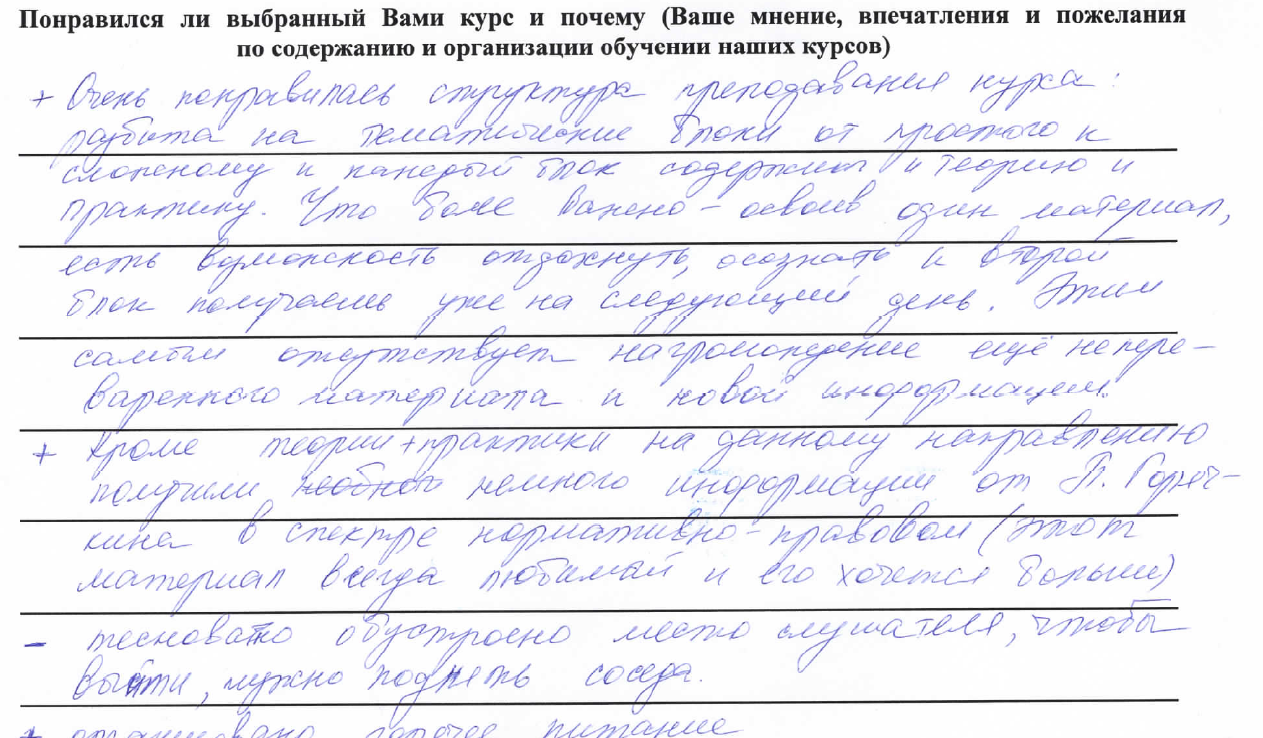 Понравился ли выбранный Вами курс и почему (Ваше мнение, впечатления и пожелания
по содержанию и организации обучении наших курсов)
+ Очень понравилась структура преподавания курса:
разбита на тематические блоки от простого к
сложному и каждый блок содержит и теорию и
практику. Что более важно - освоив один материал,
есть возможность отдохнуть, осознать и второй
блок получаешь уже на следующий день. Этим
самым отсутствует нагромождение ещё непере-
варенного материала и новой информацией.
+ Кроме теории+практики на данному направлению
получили немного информации от П. Горяч-
кина в спектре нормативно-правовом (этот
материал всегда любимый и его хочется больше)
- тесновато обустроено место слушателя, чтобы
выйти, нужно поднять соседа.
+ организовано горячее питание